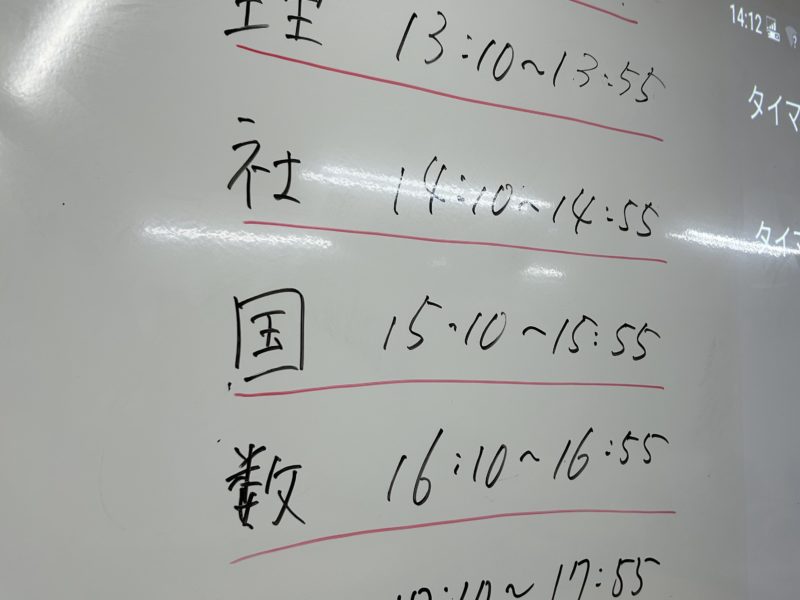 理 13:10~13:55
社 14:10~14:55
国 15:10~15:55
数 16:10~16:55
17:10~17:55
14:12
タイマ
タイマ